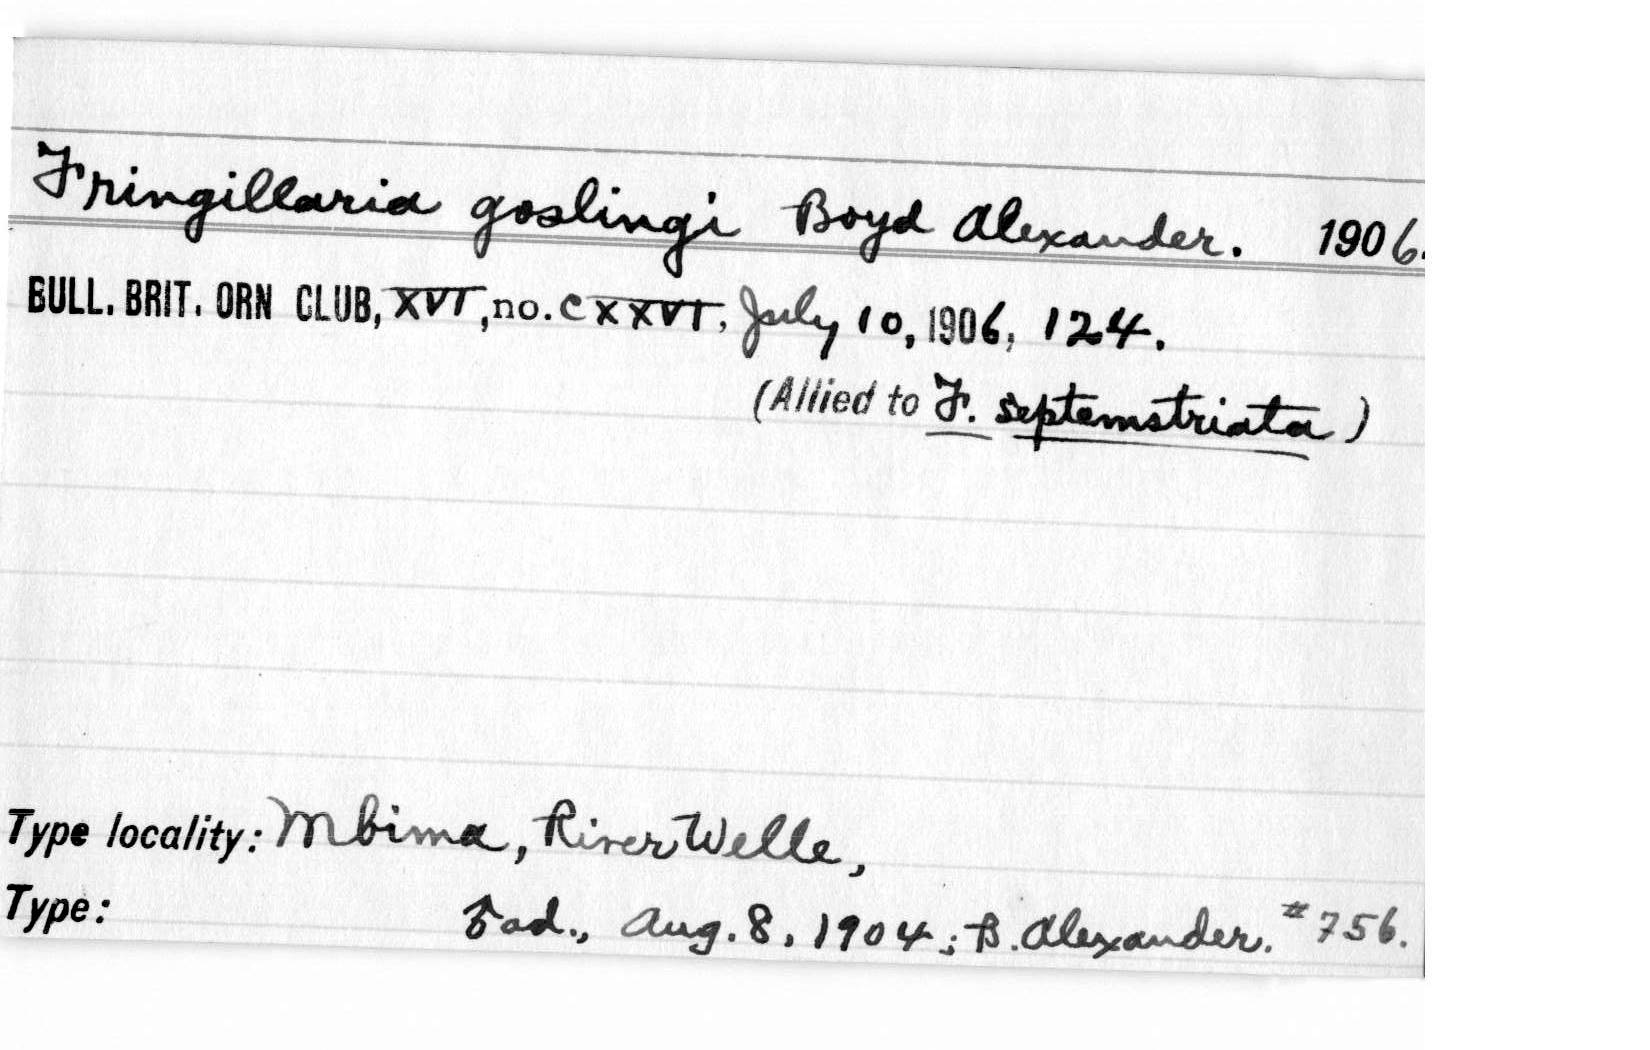 Fringillaria goslingi Boyd Alexander. 1906.
BULL. BRIT. ORN CLUB, XVI, no. CXXVI, July 10, 1906, 124.
(Allied to F. septemstriata)
Type locality: Mbima, River Welle,
Type: ad., Aug. 8, 1904; B. Alexander. #756.